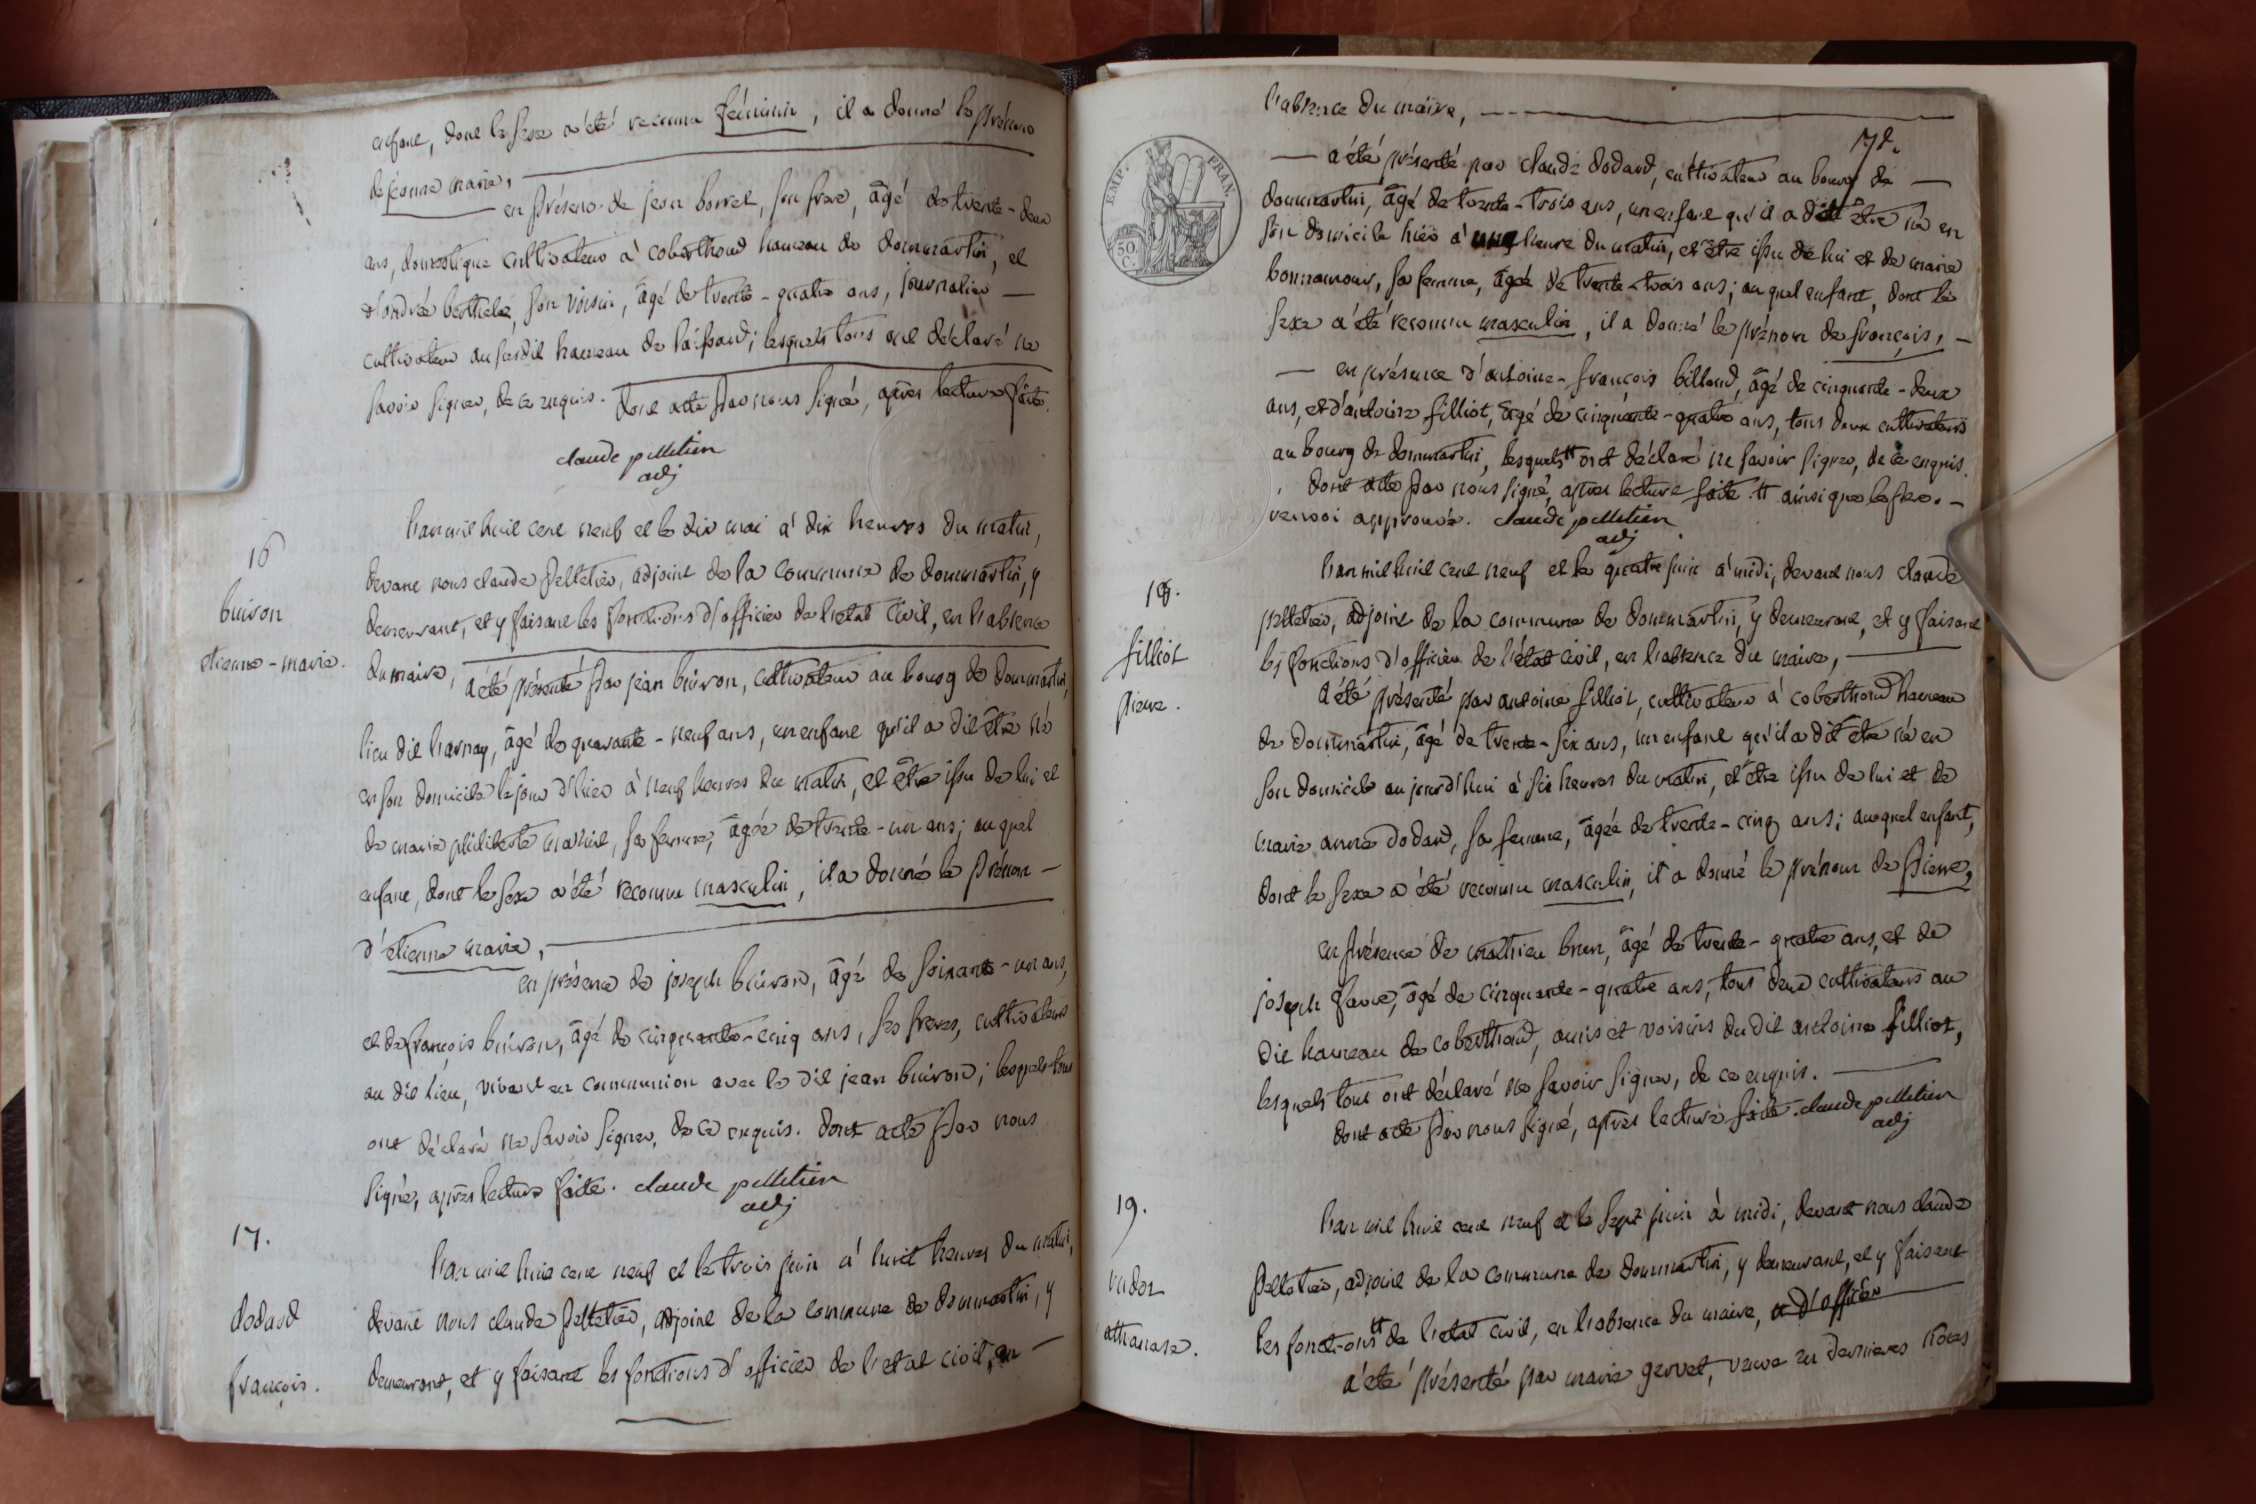 enfant, dont le sexe a été reconnu féminin, il a donné le prénom
de jeanne marie,
en présence de jean borret, son frere, âgé de trente-deux
ans, domestique cultivateur à coberthoud hameau de dommartin, et
d'andré berthele, son voisin, âgé de trente-quatre ans, journalier
cultivateur au susdit hameau de ; lesquels tous ont déclaré ne
savoir signer, de ce enquis. dont acte par nous signé, après lecture faite.
claude pelletier
adj
16
buiron
etienne-marie.
l'an mil huit cent neuf et le dix mai à dix heures du matin,
devant nous claude pelletier, adjoint de la commune de dommartin, y
demeurant, et y faisant les fonctions d'officier de l'état civil, en l'absence
du maire, a été présenté par jean buiron, cultivateur au bourg de dommartin,
lieu dit , âgé de quarante-neuf ans, un enfant qu'il a dit être né
en son domicile le jour d'hier à neuf heures du matin, et être issu de lui et
de marie philiberte , sa femme, âgée de trente-un ans; au quel
enfant, dont le sexe a été reconnu masculin, il a donné le prénom
d'etienne marie,
en présence de joseph buiron, âgé de soixante-un ans,
et de françois buiron, âgé de cinquante-cinq ans, ses freres, cultivateurs
au dit lieu, vivant en communion avec le dit jean buiron; lesquels tous
ont déclaré ne savoir signer, de ce enquis. dont acte par nous
signé, après lecture faite. claude pelletier
adj
17.
dodard
françois.
l'an mil huit cent neuf et le trois juin à huit heures du matin,
devant nous claude pelletier, adjoint de la commune de dommartin, y
demeurant, et y faisant les fonctions d'officier de l'état civil, en
l'absence du maire,
EMP. FRAN.
50 C.
a été présenté par claude dodard, cultivateur au bourg de
dommartin, âgé de trente-trois ans, un enfant qu'il a dit être né en
son domicile hier à une heure du matin, et être issu de lui et de marie
bonnamour, sa femme, âgée de trente-trois ans; au quel enfant, dont le
sexe a été reconnu masculin, il a donné le prénom de françois,
en présence d'antoine-françois billoud, âgé de cinquante-deux
ans, et d'antoine filliot, âgé de cinquante-quatre ans, tous deux cultivateurs
au bourg de dommartin, lesquels # ont déclaré ne savoir signer, de ce enquis.
dont acte par nous signé, après lecture faite. # ainsi que le pere.
renvoi approuvé. claude pelletier
adj
18.
filliot
pierre.
l'an mil huit cent neuf et le quatre juin à midi, devant nous claude
pelletier, adjoint de la commune de dommartin, y demeurant, et y faisant
les fonctions d'officier de l'état civil, en l'absence du maire,
a été présenté par antoine filliot, cultivateur à coberthoud hameau
de dommartin, âgé de trente-six ans, un enfant qu'il a dit être né en
son domicile aujourd'hui à six heures du matin, et être issu de lui et de
marie anne dodard, sa femme, âgée de trente-cinq ans; auquel enfant,
dont le sexe a été reconnu masculin, il a donné le prénom de pierre,
en présence de mathieu brun, âgé de trente-quatre ans, et de
joseph favre, âgé de cinquante-quatre ans, tous deux cultivateurs au
dit hameau de coberthoud, amis et voisins du dit antoine filliot,
lesquels tous ont déclaré ne savoir signer, de ce enquis.
dont acte par nous signé, après lecture faite. claude pelletier
adj
19.
athanase.
l'an mil huit cent neuf et le sept juin à midi, devant nous claude
pelletier, adjoint de la commune de dommartin, y demeurant, et y faisant
les fonctions # de l'état civil, en l'absence du maire, # d'officier
a été présenté par marie gervet, veuve en dernieres nôces